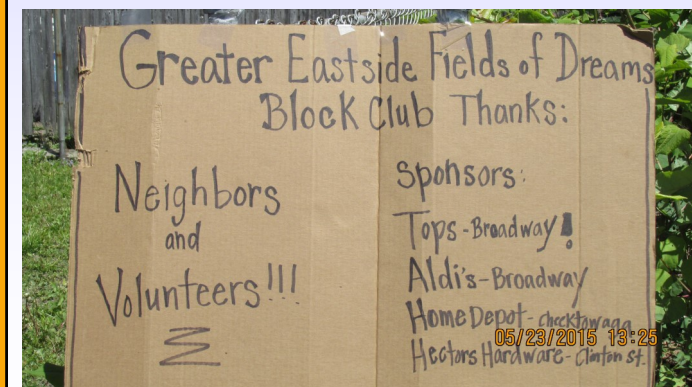 Greater Eastside Fields of Dreams
Block Club Thanks:
Neighbors
and
Volunteers!!!
Sponsors:
Tops - Broadway!
Aldi's - Broadway
Home Depot - Cheektowaga
Hectors Hardware - Clinton St.
05/23/2015 13:25